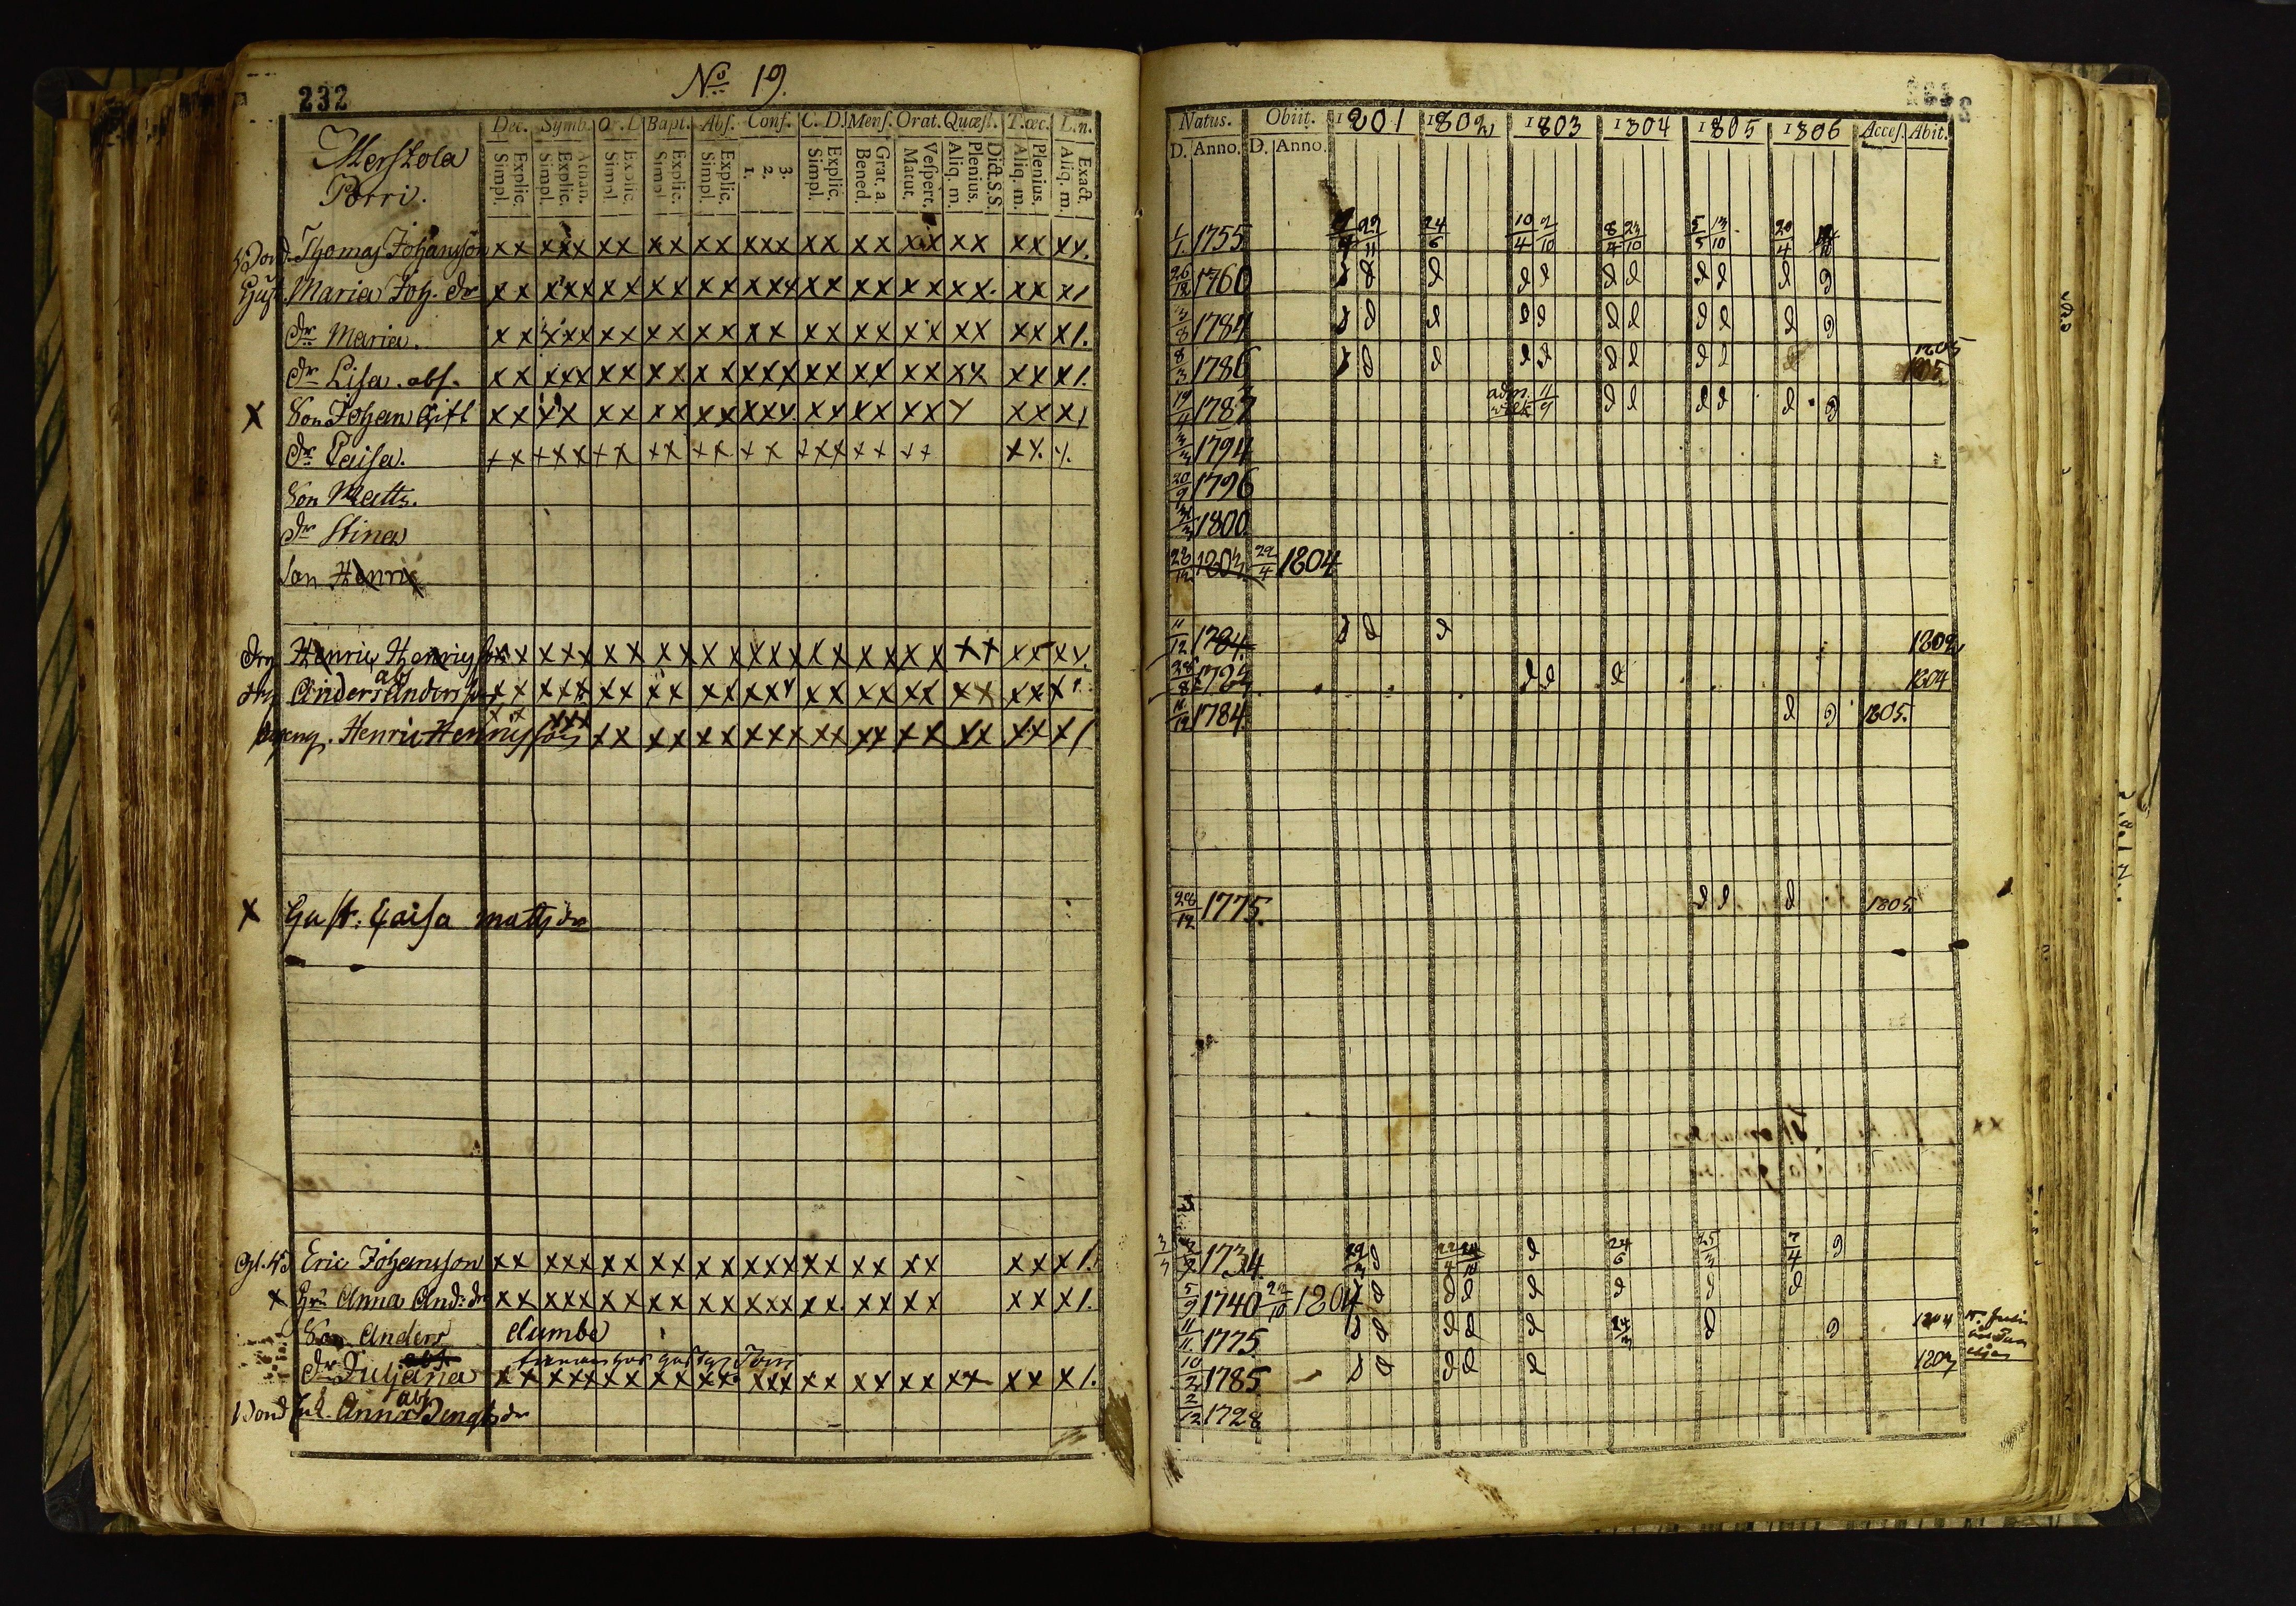 232
No 19.
Dec. Symb. O. D. Bapt. Abs. Conf. C. D. Mens. Orat. Quæst. T. œc. L. n.
Explic. Simpl. Athan. Explic. Simpl. Explic. Simpl. Explic. Simpl. Explic. Simpl. 3. 2. 1. Explic. Simpl. Grat. a. Bened. Vespert. Matut. Dict. S. S. Plenius. Aliq. m. Plenius. Aliq. m. Exact. Aliq. m.
Merskola
Pårri.
Bond. Thomas Johansson xx xxx xx xx xx xxx xx xx xx xx xx xx.
Hust. Maria Joh. dr xx xxx xx xx xx xxx xx xx xx xx. xx x1
dr Maria. xx xxx xx xx xx xx xx xx xx xx xx x1.
dr Lisa. abs. xx xxx xx xx xx xxx xx xx xx xx xx x1.
x Son Johan Gift xx xx xx xx xx xxx xx xx xx x xx x1
dr Caisa. xx xxx xx xx xx xx xxx xx xx xx
Son Matts.
dr Stina
Son Henric
drg Henric Henricsson xx xxx xx xx xx xxx xx xx xx xx xx xx.
drg Anders Andersson abs xx xxx xx xx xx xxx xx xx xx xx xx x1
Henric Henricsson xx xxx xx xx xx xxx xx xx xx xx xx x1
x Hust: Caisa Matts dr
Gl. B Eric Johansson xx xxx xx xx xx xxx xx xx xx xx x1.
x Hu Anna And: dr xx xxx xx xx xx xxx xx. xx xx xx x1.
Son Anders dumbe
dr Juliana abs xx xxx xx xx xx. xxx xx xx xx xx xx x1.
Bond Enk. Anna Bengts dr abs
Natus. Obiit. 1801 1802 1803 1804 1805 1806 Acces. Abit.
D. Anno. D. Anno.
1/1 1755 22/11 24/6 10/4 2/10 8/4 23/10 5/5 13/10 20/4
26/12 1760 d d d d d d d d d d d
3/8 1784 d d d d d d d d d d d
8/3 1786 d d d d d d d d d 1805
19/4 1787 adm. 11/9 d d d d d d
3/3 1794
20/9 1796
1800
28/12 1803 22/4 1804
11/12 1784. d d d 1802
28/8 1782 d d d 1804
11/12 1784. d d 1805.
28/12 1775. d d d 1805.
1734 d d 24/6 25/3 7/4 d
5/9 1740 22/10 1804 d d d d d d d d
11/11 1775 d d d d d 24/3 d d 1804
10/2 1785 d d d d d 1803
2/12 1728